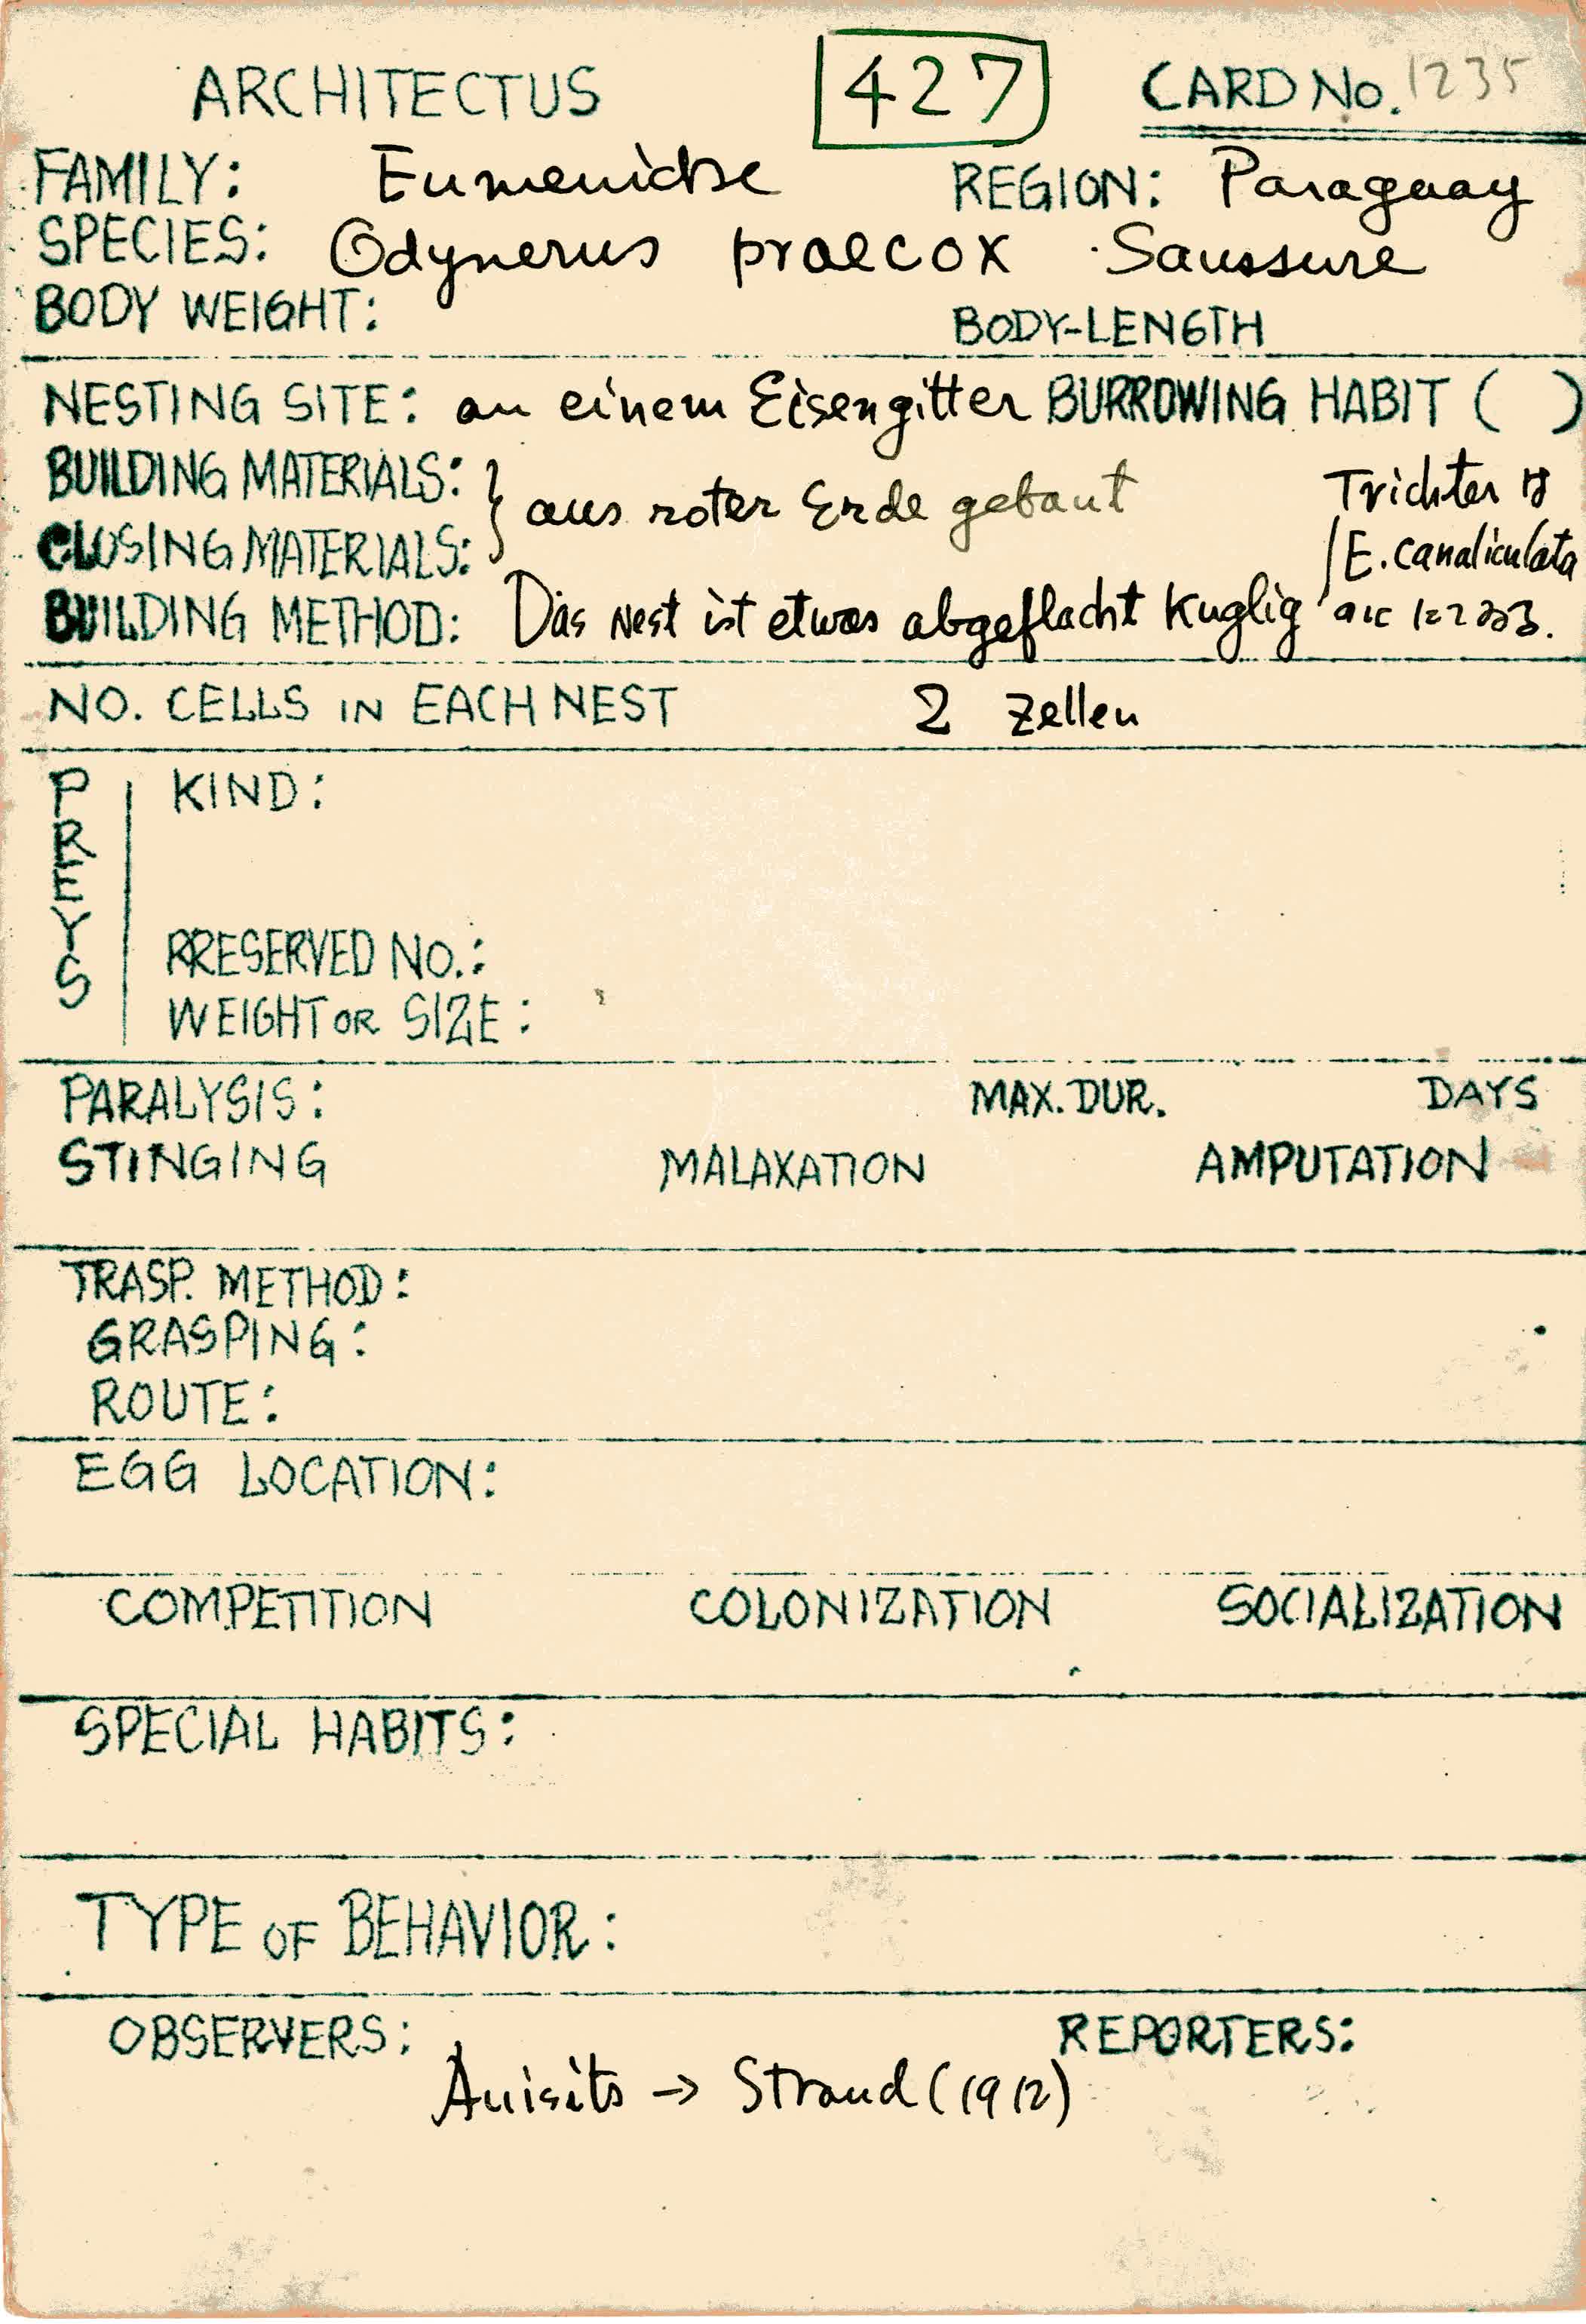 ARCHITECTUS 427 CARD No. 1235
FAMILY: Eumenidae REGION: Paraguay
SPECIES: Odynerus praecox Saussure
BODY WEIGHT: BODY-LENGTH
NESTING SITE: an einem Eisengitter BURROWING HABIT ( )
BUILDING MATERIALS: } aus roter Erde gebaut Trichter は
CLOSING MATERIALS: E. canaliculata
BUILDING METHOD: Das Nest ist etwas abgeflacht Kuglig
NO. CELLS IN EACH NEST 2 Zellen
PREYS
KIND:
PRESERVED NO.:
WEIGHT OR SIZE:
PARALYSIS: MAX. DUR. DAYS
STINGING MALAXATION AMPUTATION
TRASP. METHOD:
GRASPING:
ROUTE:
EGG LOCATION:
COMPETITION COLONIZATION SOCIALIZATION
SPECIAL HABITS:
TYPE OF BEHAVIOR:
OBSERVERS: REPORTERS:
Anisits → Strand (1912)